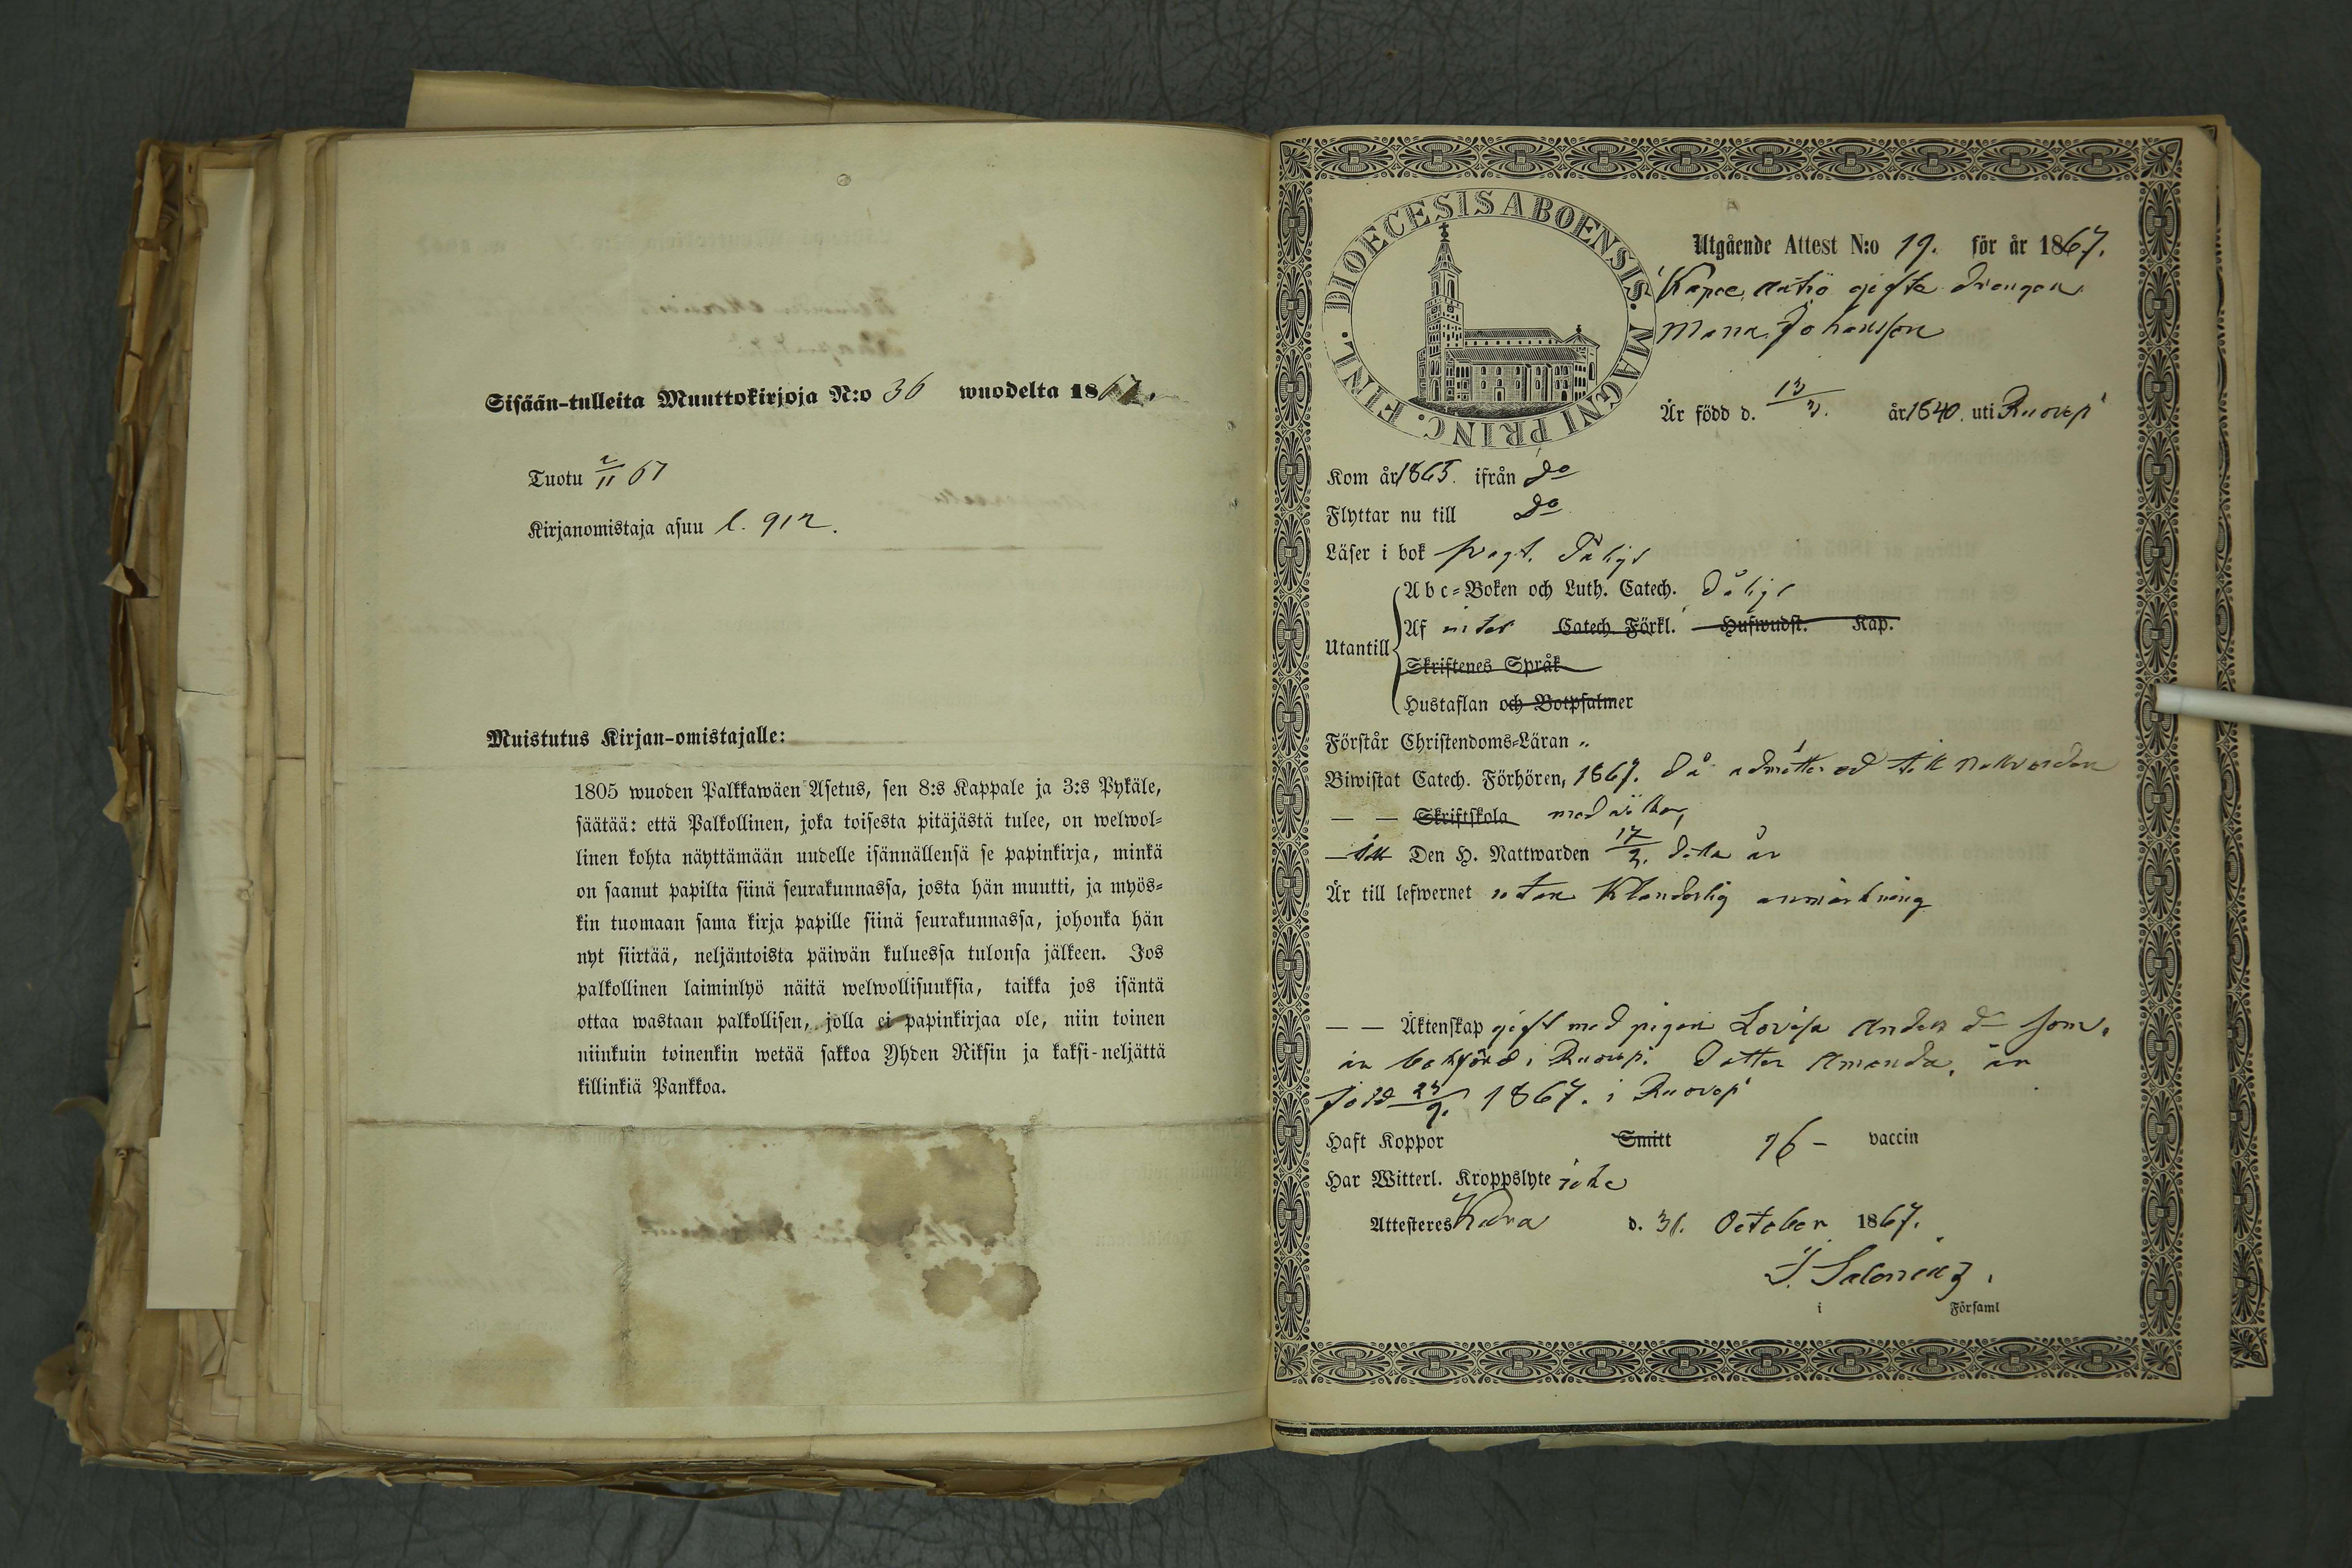 Sisään-tulleita Muuttokirjoja N:o 36 wuodelta 1867.
Tuotu 2/11 67
Kirjanomistaja asuu l. 912.
Muistutus Kirjan-omistajalle:
1805 wuoden Palkkawäen Asetus, sen 8:s Kappale ja 3:s Pykäle,
säätää: että Palkollinen, joka toisesta pitäjästä tulee, on welwol-
linen kohta näyttämään uudelle isännällensä se papinkirja, minkä
on saanut papilta siinä seurakunnassa, josta hän muutti, ja myös-
kin tuomaan sama kirja papille siinä seurakunnassa, johonka hän
nyt siirtää, neljäntoista päiwän kuluessa tulonsa jälkeen. Jos
palkollinen laiminlyö näitä welwollisuuksia, taikka jos isäntä
ottaa wastaan palkollisen, jolla ei papinkirjaa ole, niin toinen
niinkuin toinenkin wetää sakkoa Yhden Riksin ja kaksi-neljättä
killinkiä Pankkoa.
DIOECESIS ABOENSIS. MAGNI PRINC. FINL.
Utgående Attest N:o 19. för år 1867.
gifte drengen
Johansson
Är född d. 13/3. år 1840. uti Ruovesi
Kom år 1865. ifrån do
Flyttar nu till do
Läser i bok svagt.
Abc-Boken och Luth. Catech. dåligt
Utantill
Af Catech. Förkl. Hufwudst. Kap.
Skriftenes Språk
Hustaflan och Botpsalmer
Förstår Christendoms-Läran "
Biwistat Catech. Förhören, 1867. då admitterad till nattvarden
— — Skriftskola
— Den H. Nattwarden 17/3. detta år
Är till lefwernet utan klanderlig anmärkning
— — Äktenskap gift med pigan Lovisa Anders dr som
är bokförd i Ruovesi. Dotter Amanda, är
född 23/9. 1867. i Ruovesi
Haft Koppor Smitt vaccin
Har Witterl. Kroppslyte icke
Attesteres Kuru d. 31. October 1867.
i Församl